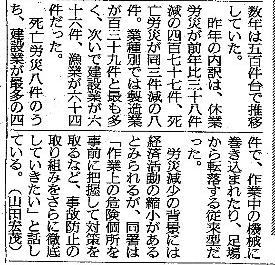 数年は五百件台で推移
していた。
昨年の内訳は、休業
労災が前年比三十八件
減の四百七十七件、死
亡労災が同三件減の八
件。業種別では製造業
が百三十九件と最も多
く、次いで建設業が六
十六件、漁業が六十四
件だった。
死亡労災八件のう
ち、建設業が最多の四
件で、作業中の機械に
巻き込まれたり、足場
から転落する従来型だ
った。
労災減少の背景には
経済活動の縮小がある
とみられるが、同署は
「作業上の危険個所を
事前に把握して対策を
取るなど、事故防止の
取り組みをさらに徹底
していきたい」と話し
ている。（山田宏茂）